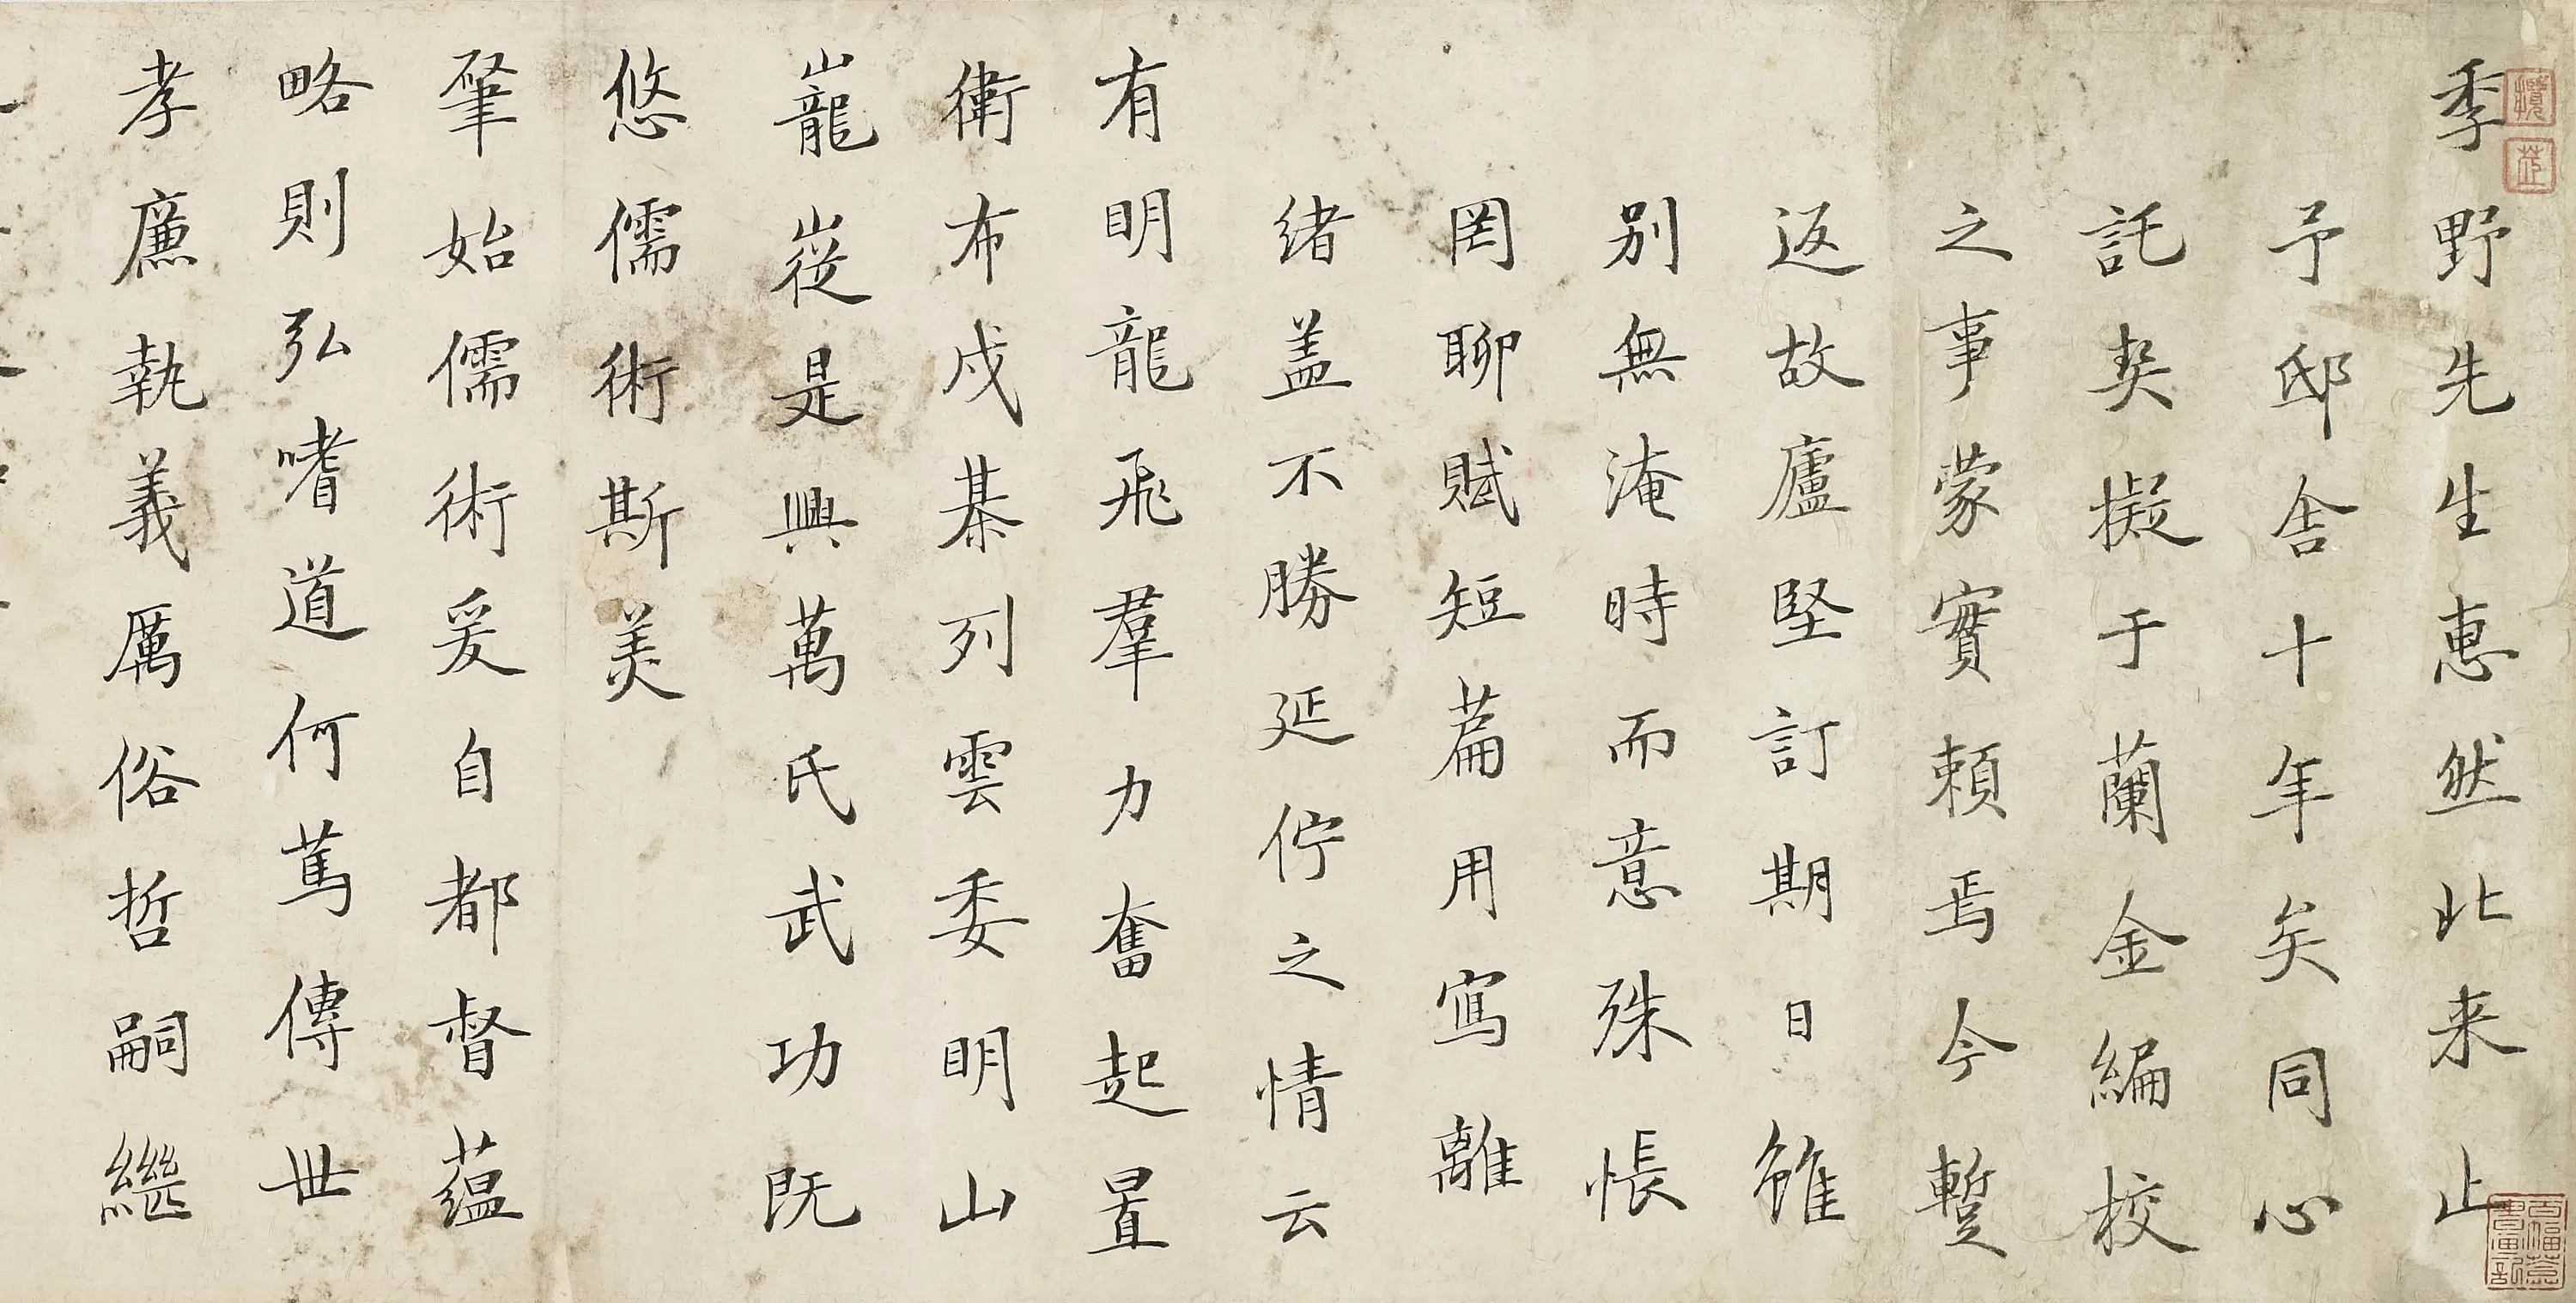 季野先生惠然北来止
予邸舍十年矣同心
託契擬于蘭金編校
之事蒙實頼焉今蹔
返故廬堅訂期日雖
别無淹時而意殊悵
罔聊賦短篇用寫離
绪盖不勝延佇之情云
有明龍飛羣力奮起置
衛布戍棊列雲委明山
巃嵷是興萬氏武功既
悠儒術斯美
肇始儒術爰自都督蕴
略則弘嗜道何篤傳世
孝廉執義厲俗哲嗣繼